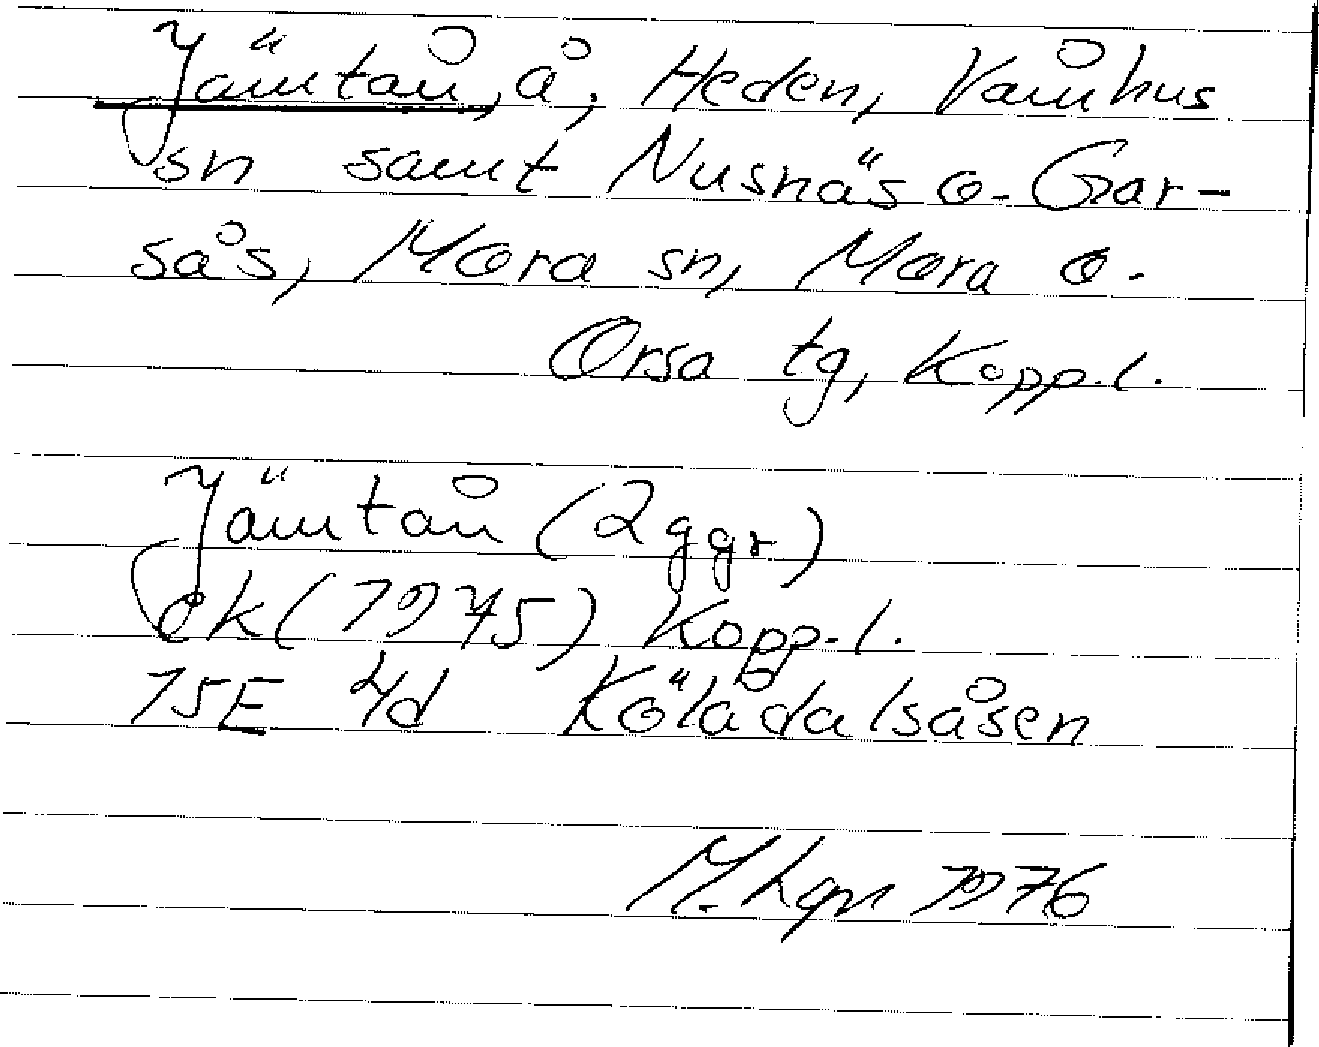 Jämtån, å, Heden, Våmhus
sn samt Nusnäs o. Gar-
sås, Mora sn, Mora o.
Orsa tg, Kopp.l.
Jämtån (2 ggr)
ek (1945) Kopp.l.
15E 4d Kölådalsåsen
M. 1976